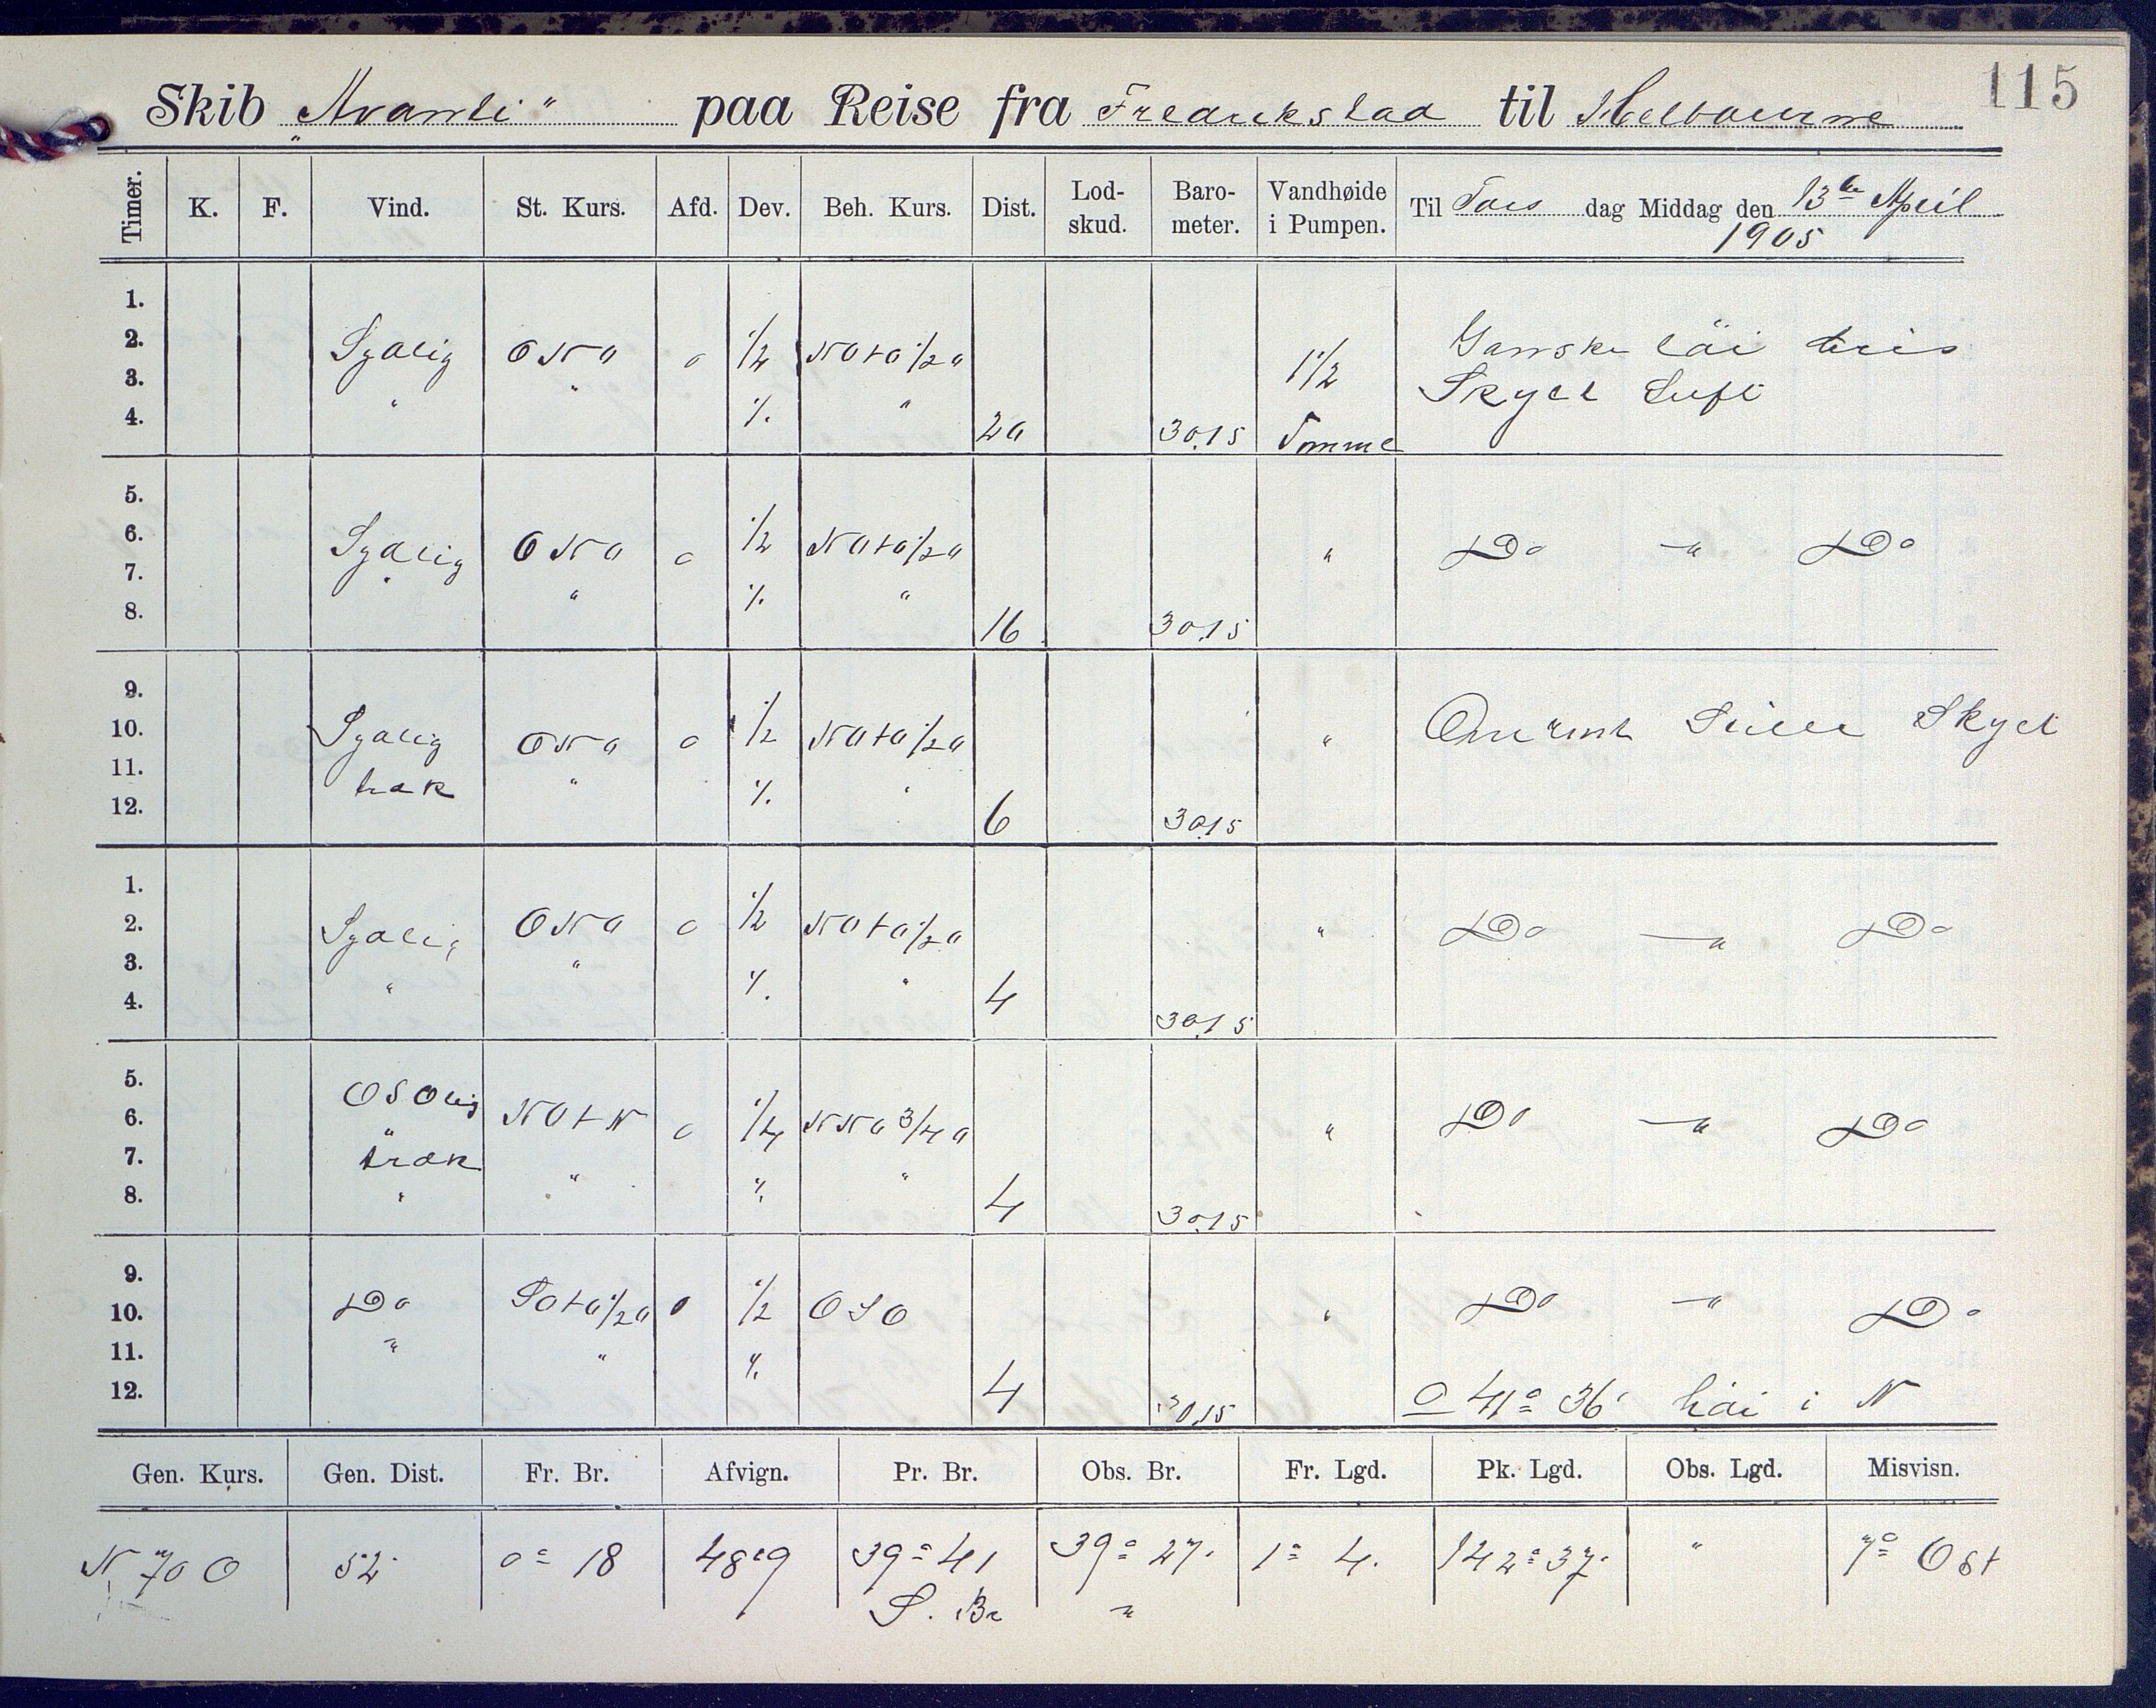 115
Skib „Avanti“ paa Reise fra Fredrikstad til Melbourne
Timer. K. F. Vind. St. Kurs. Afd. Dev. Beh. Kurs. Dist. Lod-skud. Baro-meter. Vandhøide i Pumpen. Til Tors dag Middag den 13de April
1905
1.
2. Sydlig ONO 0 1/2 NOtO1/2O 1 1/2 Ganske løi bris
3. " " Skyet Luft
4. " % " 20 30,15 Tomme
5.
6. Sydlig ONO 0 1/2 NOtO1/2O " Do —"— Do
7. " " % "
8. 16 30,15
9.
10. Sydlig ONO 0 1/2 NOtO1/2O " Stille Skyet
11. træk " % "
12. 6 30,15
1.
2. Sydlig ONO 0 1/2 NOtO1/2O " Do —"— Do
3. " " % "
4. 4 30,15
5. OSOlig
6. " NOtN 0 1/4 NNO3/4O " Do —"— Do
7. træk " % "
8. " 4 30,15
9.
10. Do SOtO1/2O 0 1/2 OSO " Do —"— Do
11. " " %
12. 4 30,15 O 41° 36' høi i N
Gen. Kurs. Gen. Dist. Fr. Br. Afvign. Pr. Br. Obs. Br. Fr. Lgd. Pk. Lgd. Obs. Lgd. Misvisn.
N 70 O 52' 0° 18 48,9 39° 41 39° 27' 1° 4' 142° 37' " 7° Ost
S. Br "